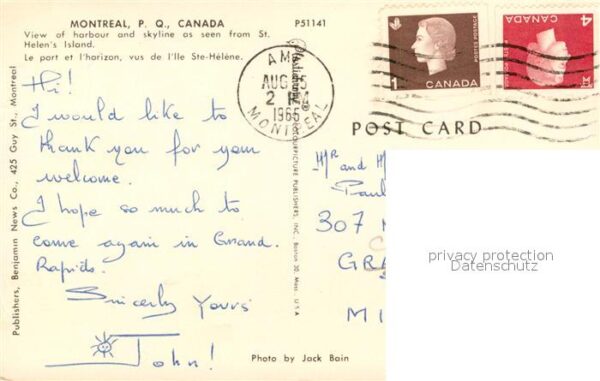 MONTREAL, P. Q., CANADA
P51141
View of harbour and skyline as seen from St.
Helen's Island.
Le port et l'horizon, vus de l'Ile Ste-Hélène.
Hi!
I would like to
thank you for your
welcome.
I hope so much to
come again in Grand.
Rapids.
Sincerly Yours
John!
Photo by Jack Bain
Publishers, Benjamin News Co., 425 Guy St., Montreal
PUBLISHERS, INC., Boston 30, Mass., U.S.A.
AM
AUG
2
MONTREAL
1
CANADA
POSTES POSTAGE
CANADA
4
POST CARD
Mr and
Paul
307
GRA
MI
privacy protection
Datenschutz